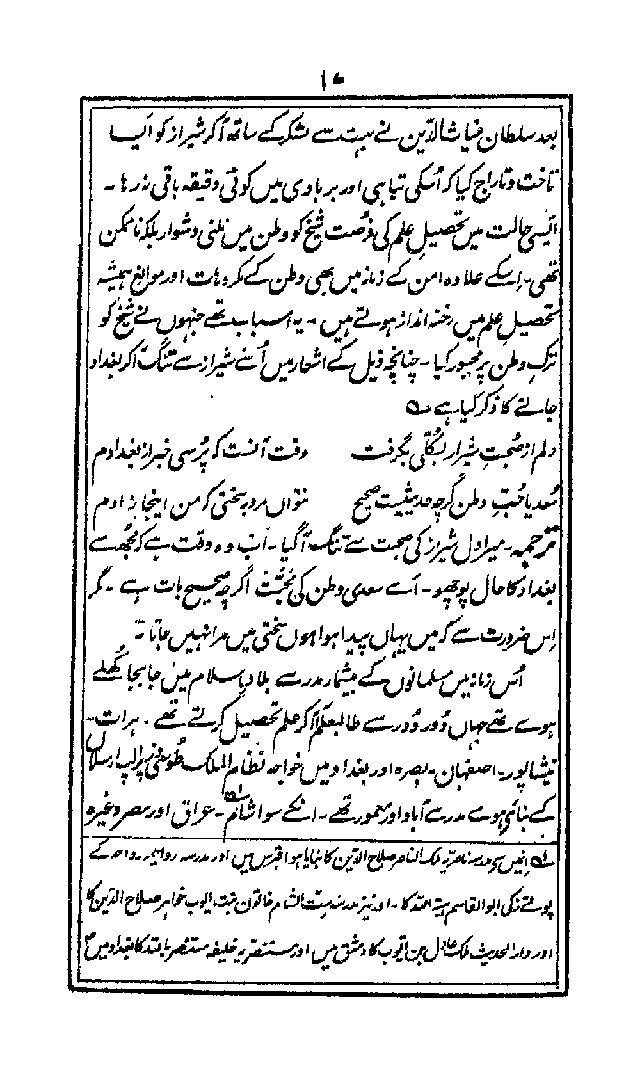 ۱۷
بعد سلطان غیاث الدین نے بہت سے لشکر کے ساتھ آکر شیراز کو ایسا
تاخت و تاراج کیا کہ اُسکی تباہی اور بربادی میں کوئی دقیقہ باقی نہ رہا۔
ایسی حالت میں تحصیلِ علم کی فرصت شیخ کو وطن میں ملنی دشوار بلکہ ناممکن
تھی۔ اِسکے علاوہ امن کے زمانہ میں بھی وطن کے مکروہات اور موانع ہمیشہ
تحصیلِ علم میں رخنہ انداز ہوتے ہیں۔ یہ اسباب تھے جنہوں نے شیخ کو
ترکِ وطن پر مجبور کیا۔ چنانچہ ذیل کے اشعار میں اُسنے شیراز سے تنگ آکر بغداد
جانے کا ذکر کیا ہے
دلم از صحبتِ شیراز بکُلّی بگرفت وقت آنست کہ پُرسی خبر از بغدادم
سعدیا حُبِّ وطن گرچہ حدیثیست صحیح نتواں مرد بسختی کہ من اینجا زادم
ترجمہ۔ میرا دل شیراز کی صحبت سے تنگ آگیا۔ اَب وہ وقت ہے کہ مجھسے
بغداد کا حال پوچھو۔ اَے سعدی وطن کی محبّت اگرچہ صحیح بات ہے۔ مگر
اِس ضرورت سے کہ میں یہاں پیدا ہوا ہوں سختی میں مرا نہیں جاتا۔
اُس زمانہ میں مسلمانوں کے بیشمار مدرسے بلادِ اسلام میں جابجا کھُلے
ہوے تھے جہاں دُور دُور سے طالبعلم آکر علم تحصیل کرتے تھے۔ ہرات۔
نیشاپور۔ اصفہان۔ بصرہ اور بغداد میں خواجہ نظام الملک طوسی وزیر الپ ارسلاں
کے بنائے ہوے مدرسے آباد اور معمور تھے۔ انکے سوا شام۔ عراق اور مصر وغیرہ
؎۱ انہیں کی مدرسہ ناصریہ ملک الناصر صلاح الدین کا بنایا ہوا قدس میں اور مدرسہ رواحیہ۔ رواحہ کے
پوتے زکی ابوالقاسم ہبۃ اللہ کا۔ اور نیز مدرسہ ست الشام خاتون بنت ایوب خواہر صلاح الدین کا
اور دار الحدیث ملک عادل بن ایوب کا دمشق میں اور مستنصریہ خلیفہ مستنصر باللہ کا بغداد میں